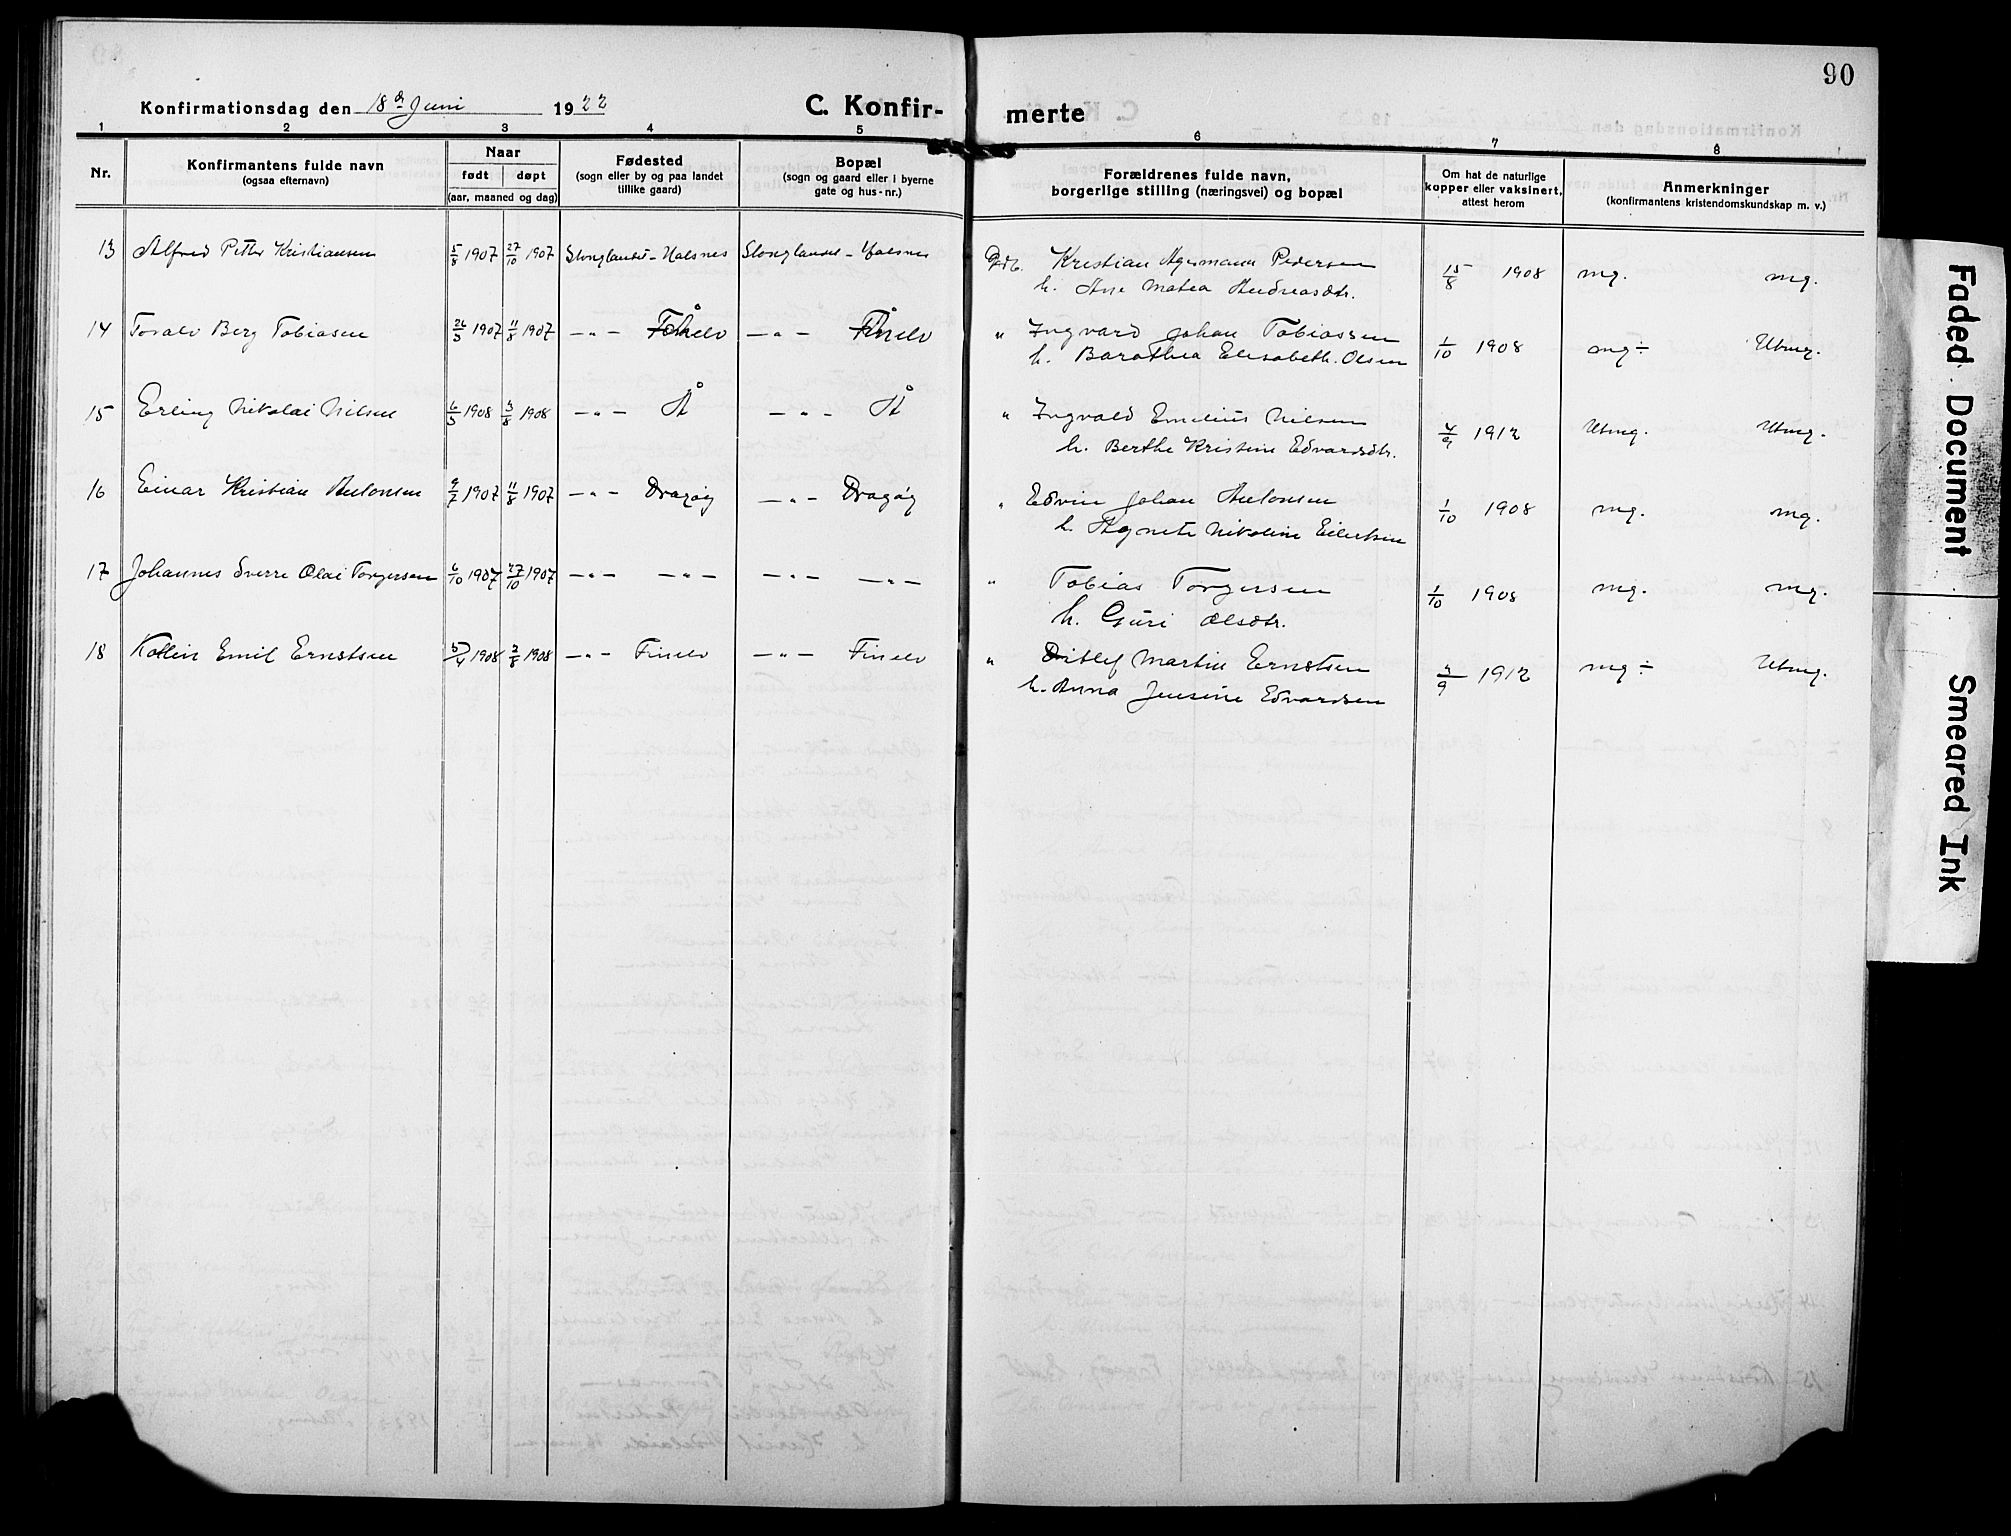 90
Konfirmationsdag den 18de Juni 1922
C. Konfir-
merte
1 2 3 4 5 6 7 8
Nr.
Konfirmantens fulde navn
(ogsaa efternavn)
Naar
født døpt
(aar, maaned og dag)
Fødested
(sogn eller by og paa landet
tillike gaard)
Bopæl
(sogn og gaard eller i byerne
gate og hus-nr.)
Forældrenes fulde navn,
borgerlige stilling (næringsvei) og bopæl
Om hat de naturlige
kopper eller vaksinert,
attest herom
Anmerkninger
(konfirmantens kristendomskundskap m. v.)
13 Alfred Petter Kristiansen 5/8 1907 27/10 1907 Stonglandet - Valsnes Stonglandet - Valsnes Gdb. Kristian Agesmann Pedersen 15/8 1908 mg. mg.
h. Ane Matea Andreasdtr.
14 Toralv Berg Tobiasen 26/3 1907 11/8 1907 -"- Å -"- Å " Ingvard Johan Tobiassen 1/10 1908 mg ÷ Utmg.
h. Barathea Elisabeth Olsen
15 Erling Nikolai Nilsen 6/3 1908 3/8 1908 -"- Å -"- Å " Ingvald Emelius Nilsen 4/9 1912 Utmg. Utmg.
h. Berthe Kristine Edvardsdtr.
16 Einar Kristian Antonsen 9/7 1907 11/8 1907 -"- Dragøy -"- Dragøy " Edvin Johan Antonsen 1/10 1908 mg. mg.
h. Agnete Nikoline Eilertsen
17 Johannes Sverre Olai Torgersen 6/10 1907 27/10 1907 -"- -"- -"- -"- " Tobias Torgersen 1/10 1908 mg. mg.
h. Guri Olsdtr.
18 Kollin Emil Ernstsen 5/4 1908 3/8 1908 -"- Finelv -"- Finelv " Ditlef Martin Ernstsen 4/9 1912 mg ÷ Utmg.
h. Anna Jensine Edvardsen
Faded Document
Smeared Ink